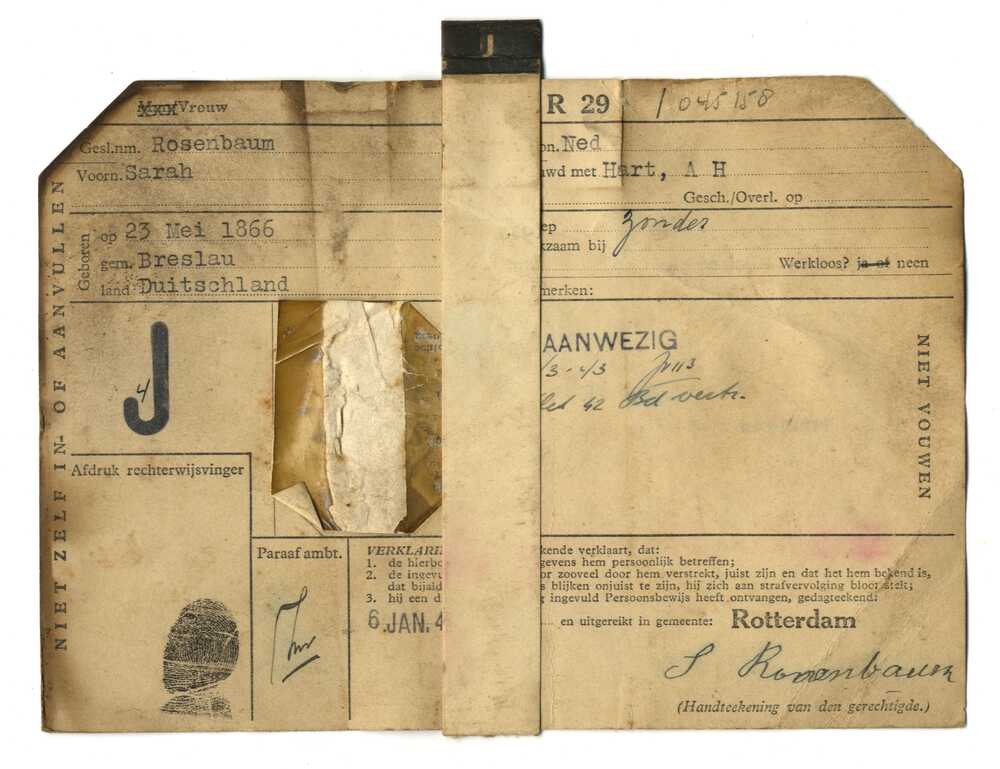 J
Vrouw
R 29
1045158
Gesl.nm. Rosenbaum
on. Ned
Voorn. Sarah
uwd met Hart, A H
Gesch./Overl. op
Geboren
op 23 Mei 1866
gem. Breslau
land Duitschland
ep zonder
kzaam bij
Werkloos? ja of neen
merken:
NIET ZELF IN- OF AANVULLEN
J
4
AANWEZIG
NIET VOUWEN
Afdruk rechterwijsvinger
Paraaf ambt.
VERKLARI
kende verklaart, dat:
1. de hierbo
gevens hem persoonlijk betreffen;
2. de ingevu
or zooveel door hem verstrekt, juist zijn en dat het hem bekend is,
dat bijald
s blijken onjuist te zijn, hij zich aan strafvervolging bloot stelt;
3. hij een d
g ingevuld Persoonsbewijs heeft ontvangen, gedagteekend:
6 JAN. 4
en uitgereikt in gemeente: Rotterdam
S Rosenbaum
(Handteekening van den gerechtigde.)